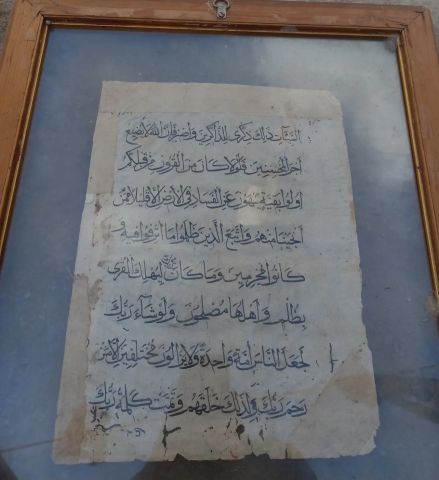 السيئات ذلك ذكرى للذاكرين واصبر فإن الله لا يضيع
أجر المحسنين فلولا كان من القرون من قبلكم
أولوا بقية ينهون عن الفساد في الأرض إلا قليلا ممن
أنجينا منهم واتبع الذين ظلموا ما أترفوا فيه و
كانوا مجرمين وما كان ربك ليهلك القرى
بظلم وأهلها مصلحون ولو شاء ربك
لجعل الناس أمة واحدة ولا يزالون مختلفين إلا من
رحم ربك ولذلك خلقهم وتمت كلمة ربك